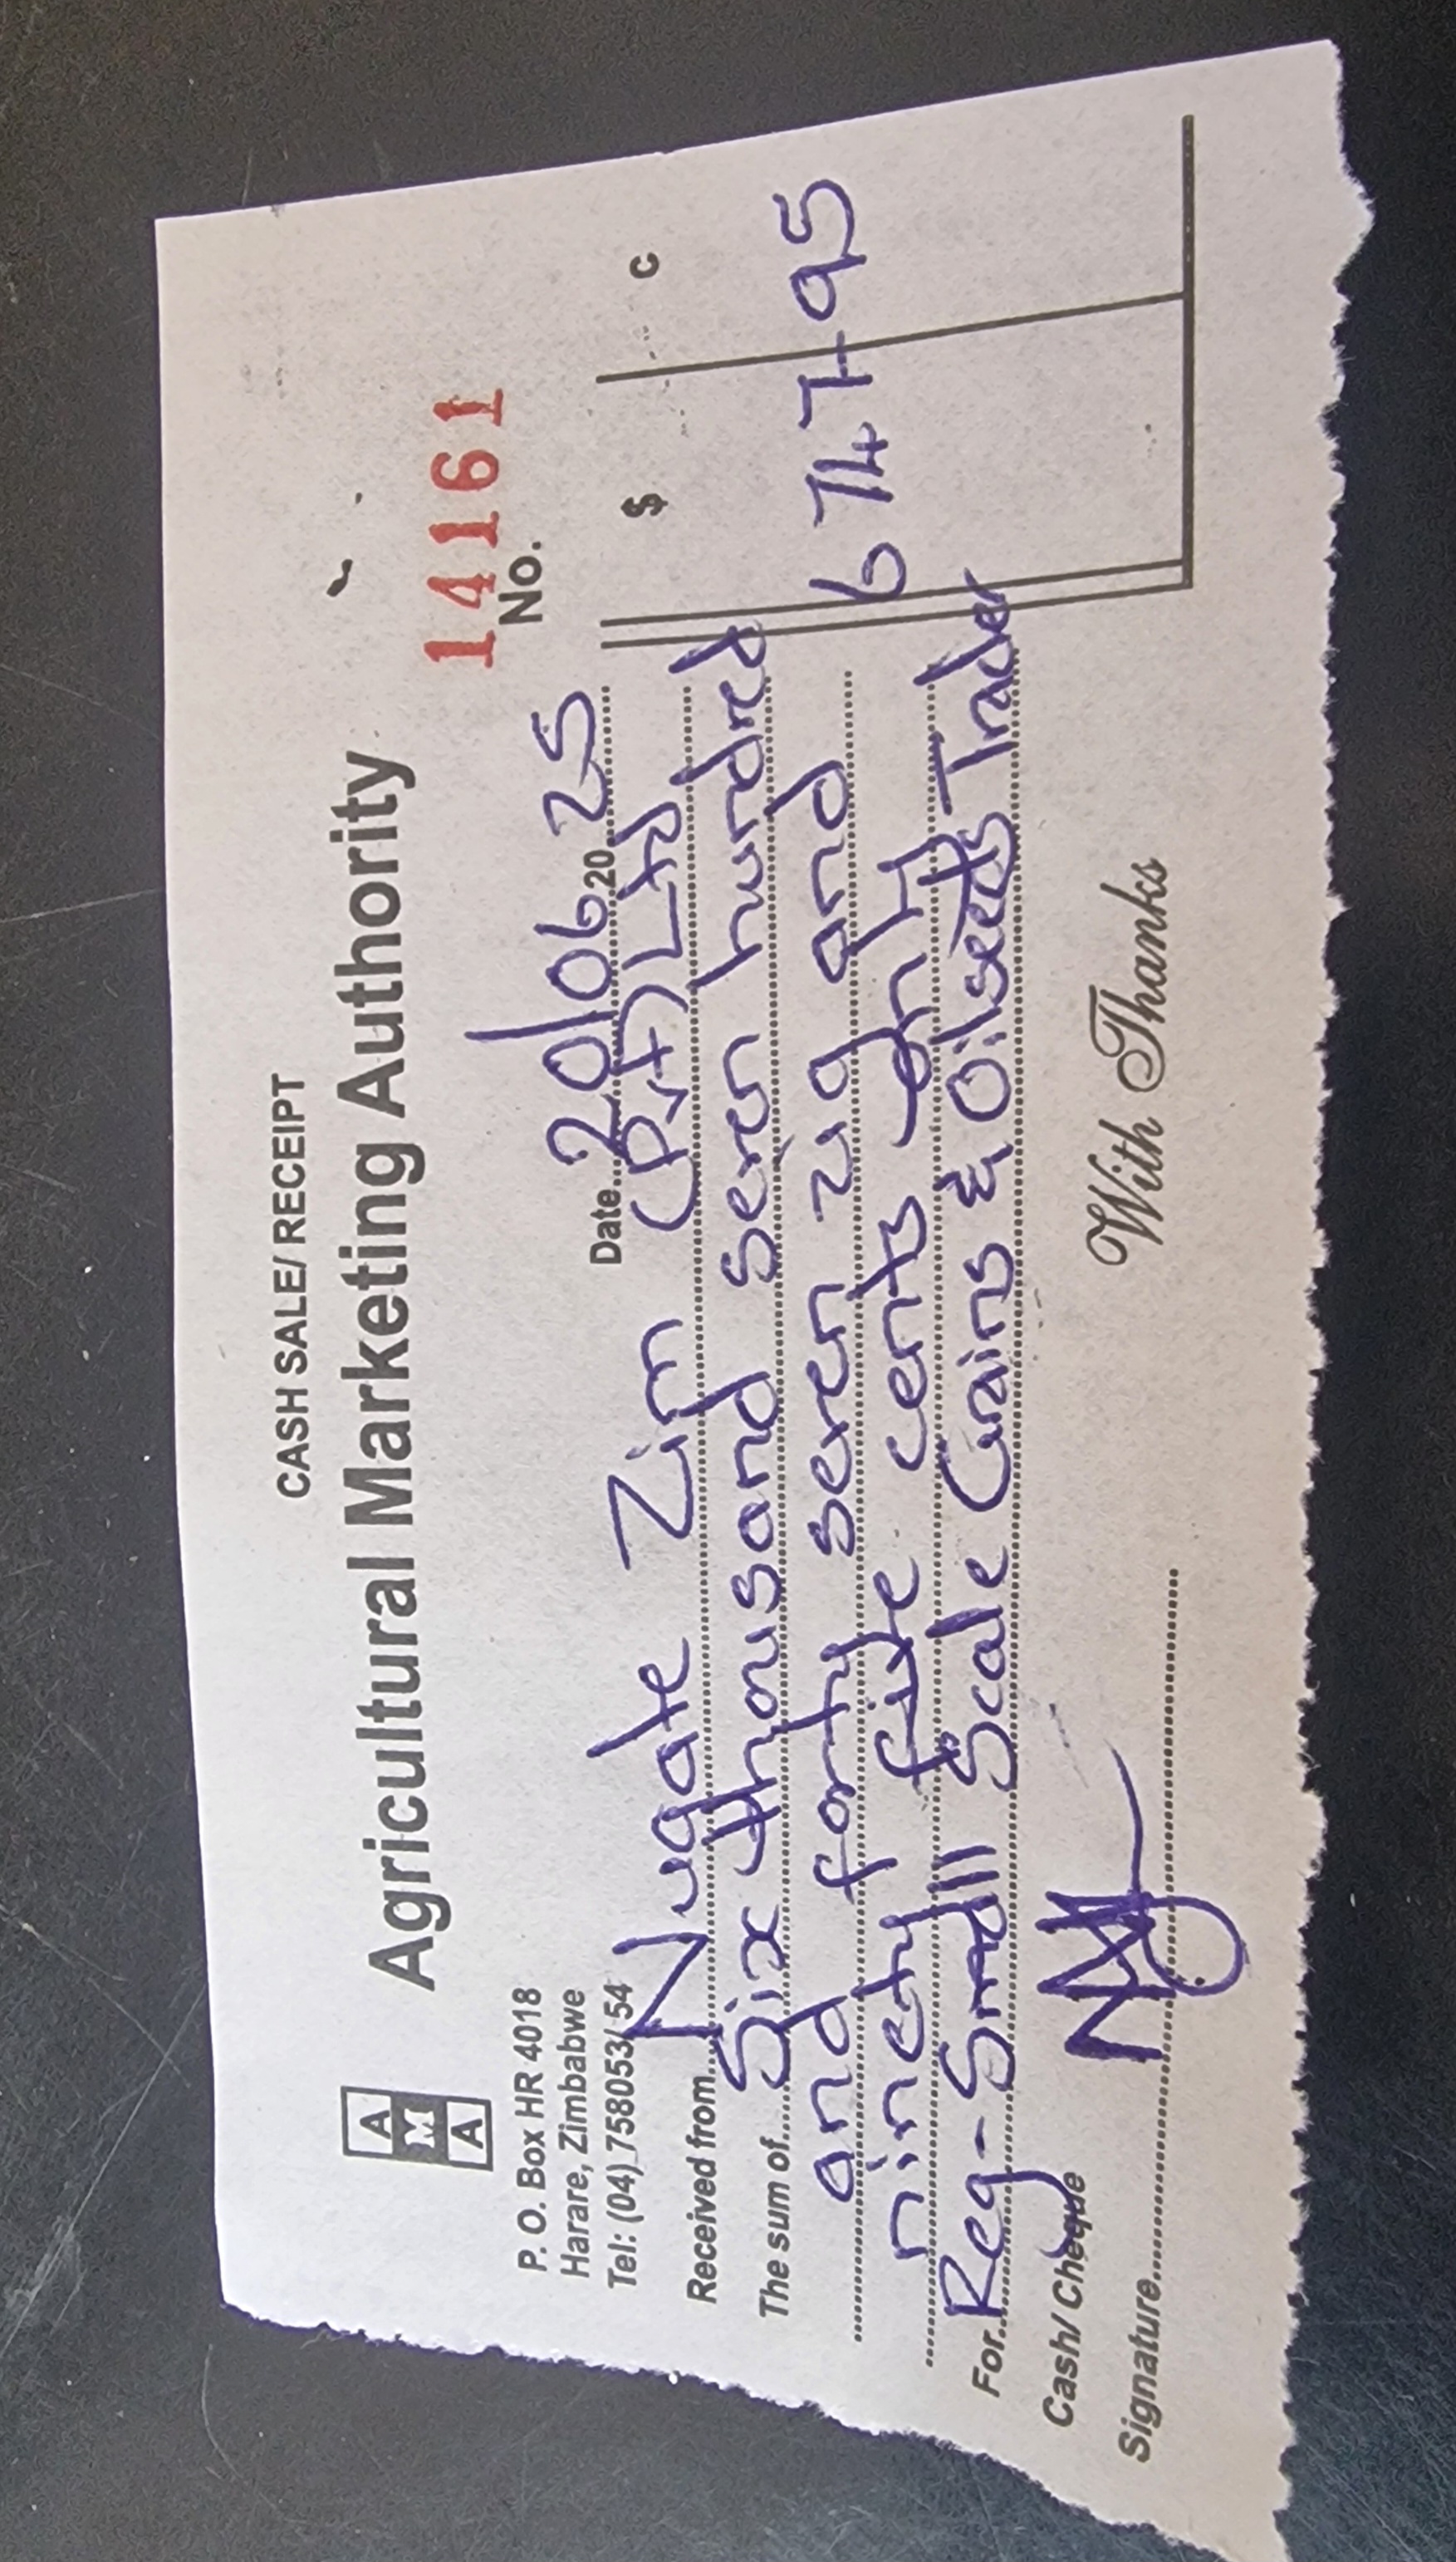 CASH SALE/ RECEIPT
A
M
A
Agricultural Marketing Authority
14161
P. O. Box HR 4018
Harare, Zimbabwe
Tel: (04) 758053/ 54
No.
Date 20/06 2025
Received from Nugate Zim (Pvt) Ltd
$ c
The sum of Six thousand seven hundred
and forty seven zig and
6 747-95
ninety five cents only
For Reg- Small Scale Grains & Oilseeds Trader
Cash/ Cheque
With Thanks
Signature